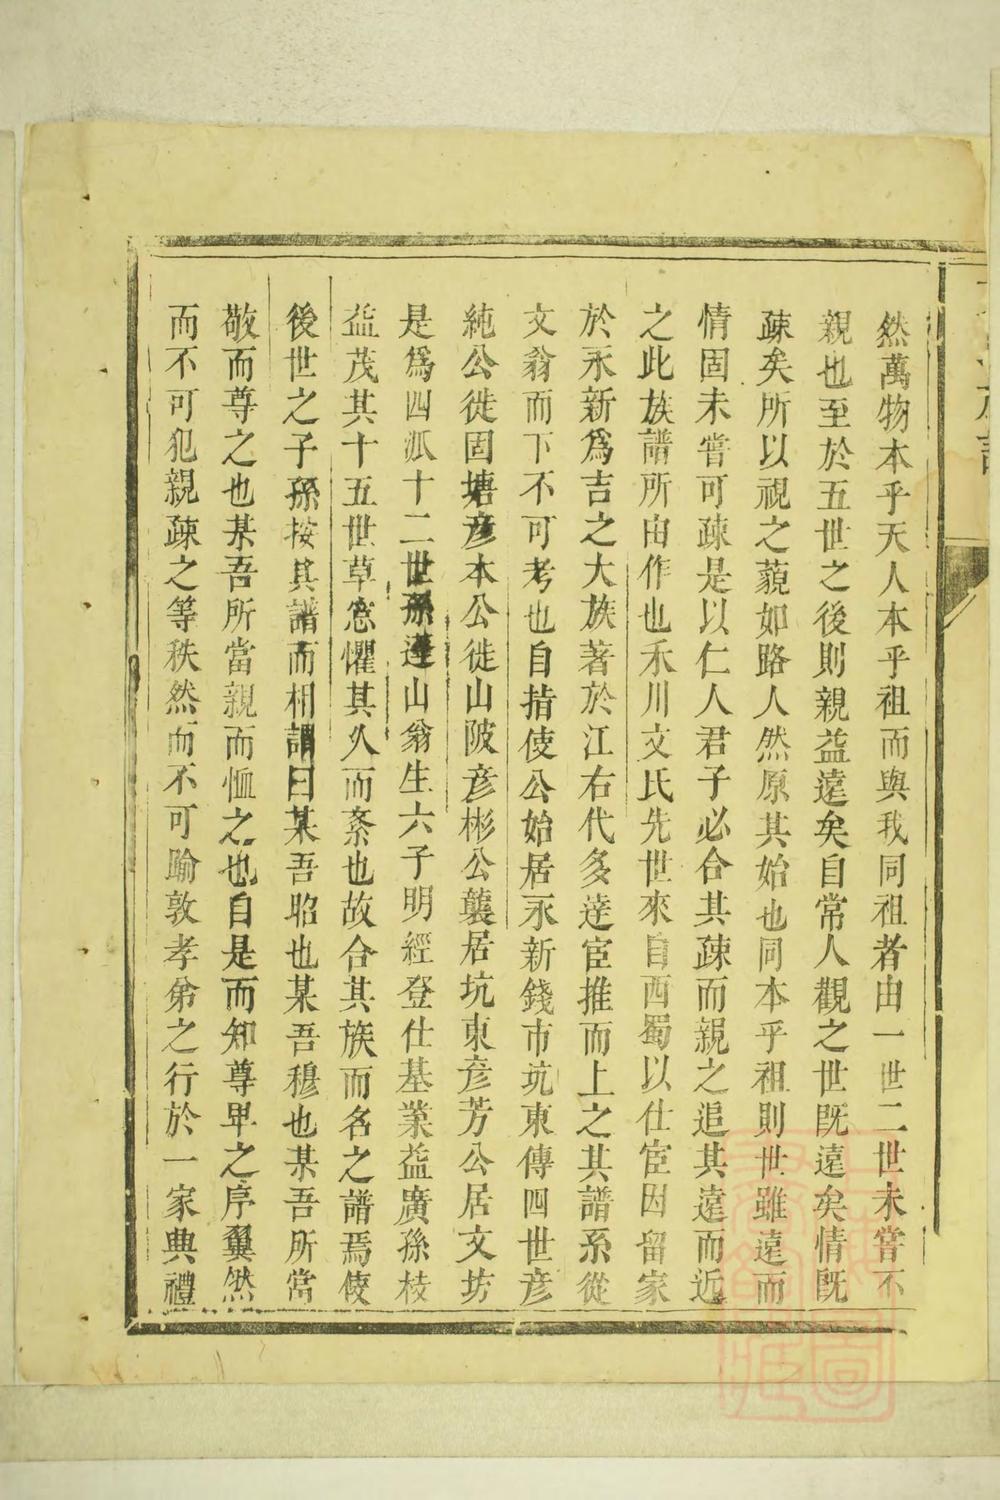 然萬物本乎天人本乎祖而與我同祖者由一世二世未嘗不
親也至於五世之後則親益遠矣自常人觀之世既遠矣情既
疎矣所以視之藐如路人然原其始也同本乎祖則世雖遠而
情固未嘗可疎是以仁人君子必合其疎而親之追其遠而近
之此族譜所由作也禾川文氏先世來自西蜀以仕宦因留家
於永新爲吉之大族著於江右代多逹宦推而上之其譜系從
文翁而下不可考也自指使公始居永新錢市坑東傳四世彦
純公徙固塘彦本公徙山陂彦彬公襲居坑東彦芳公居文坊
是爲四派十二世孫蓮山翁生六子明經登仕基業益廣孫枝
益茂其十五世草窓懼其久而紊也故合其族而名之譜焉使
後世之子孫按其譜而相謂曰某吾昭也某吾穆也某吾所當
敬而尊之也某吾所當親而恤之也自是而知尊卑之序翼然
而不可犯親疎之等秩然而不可踰敦孝弟之行於一家典禮